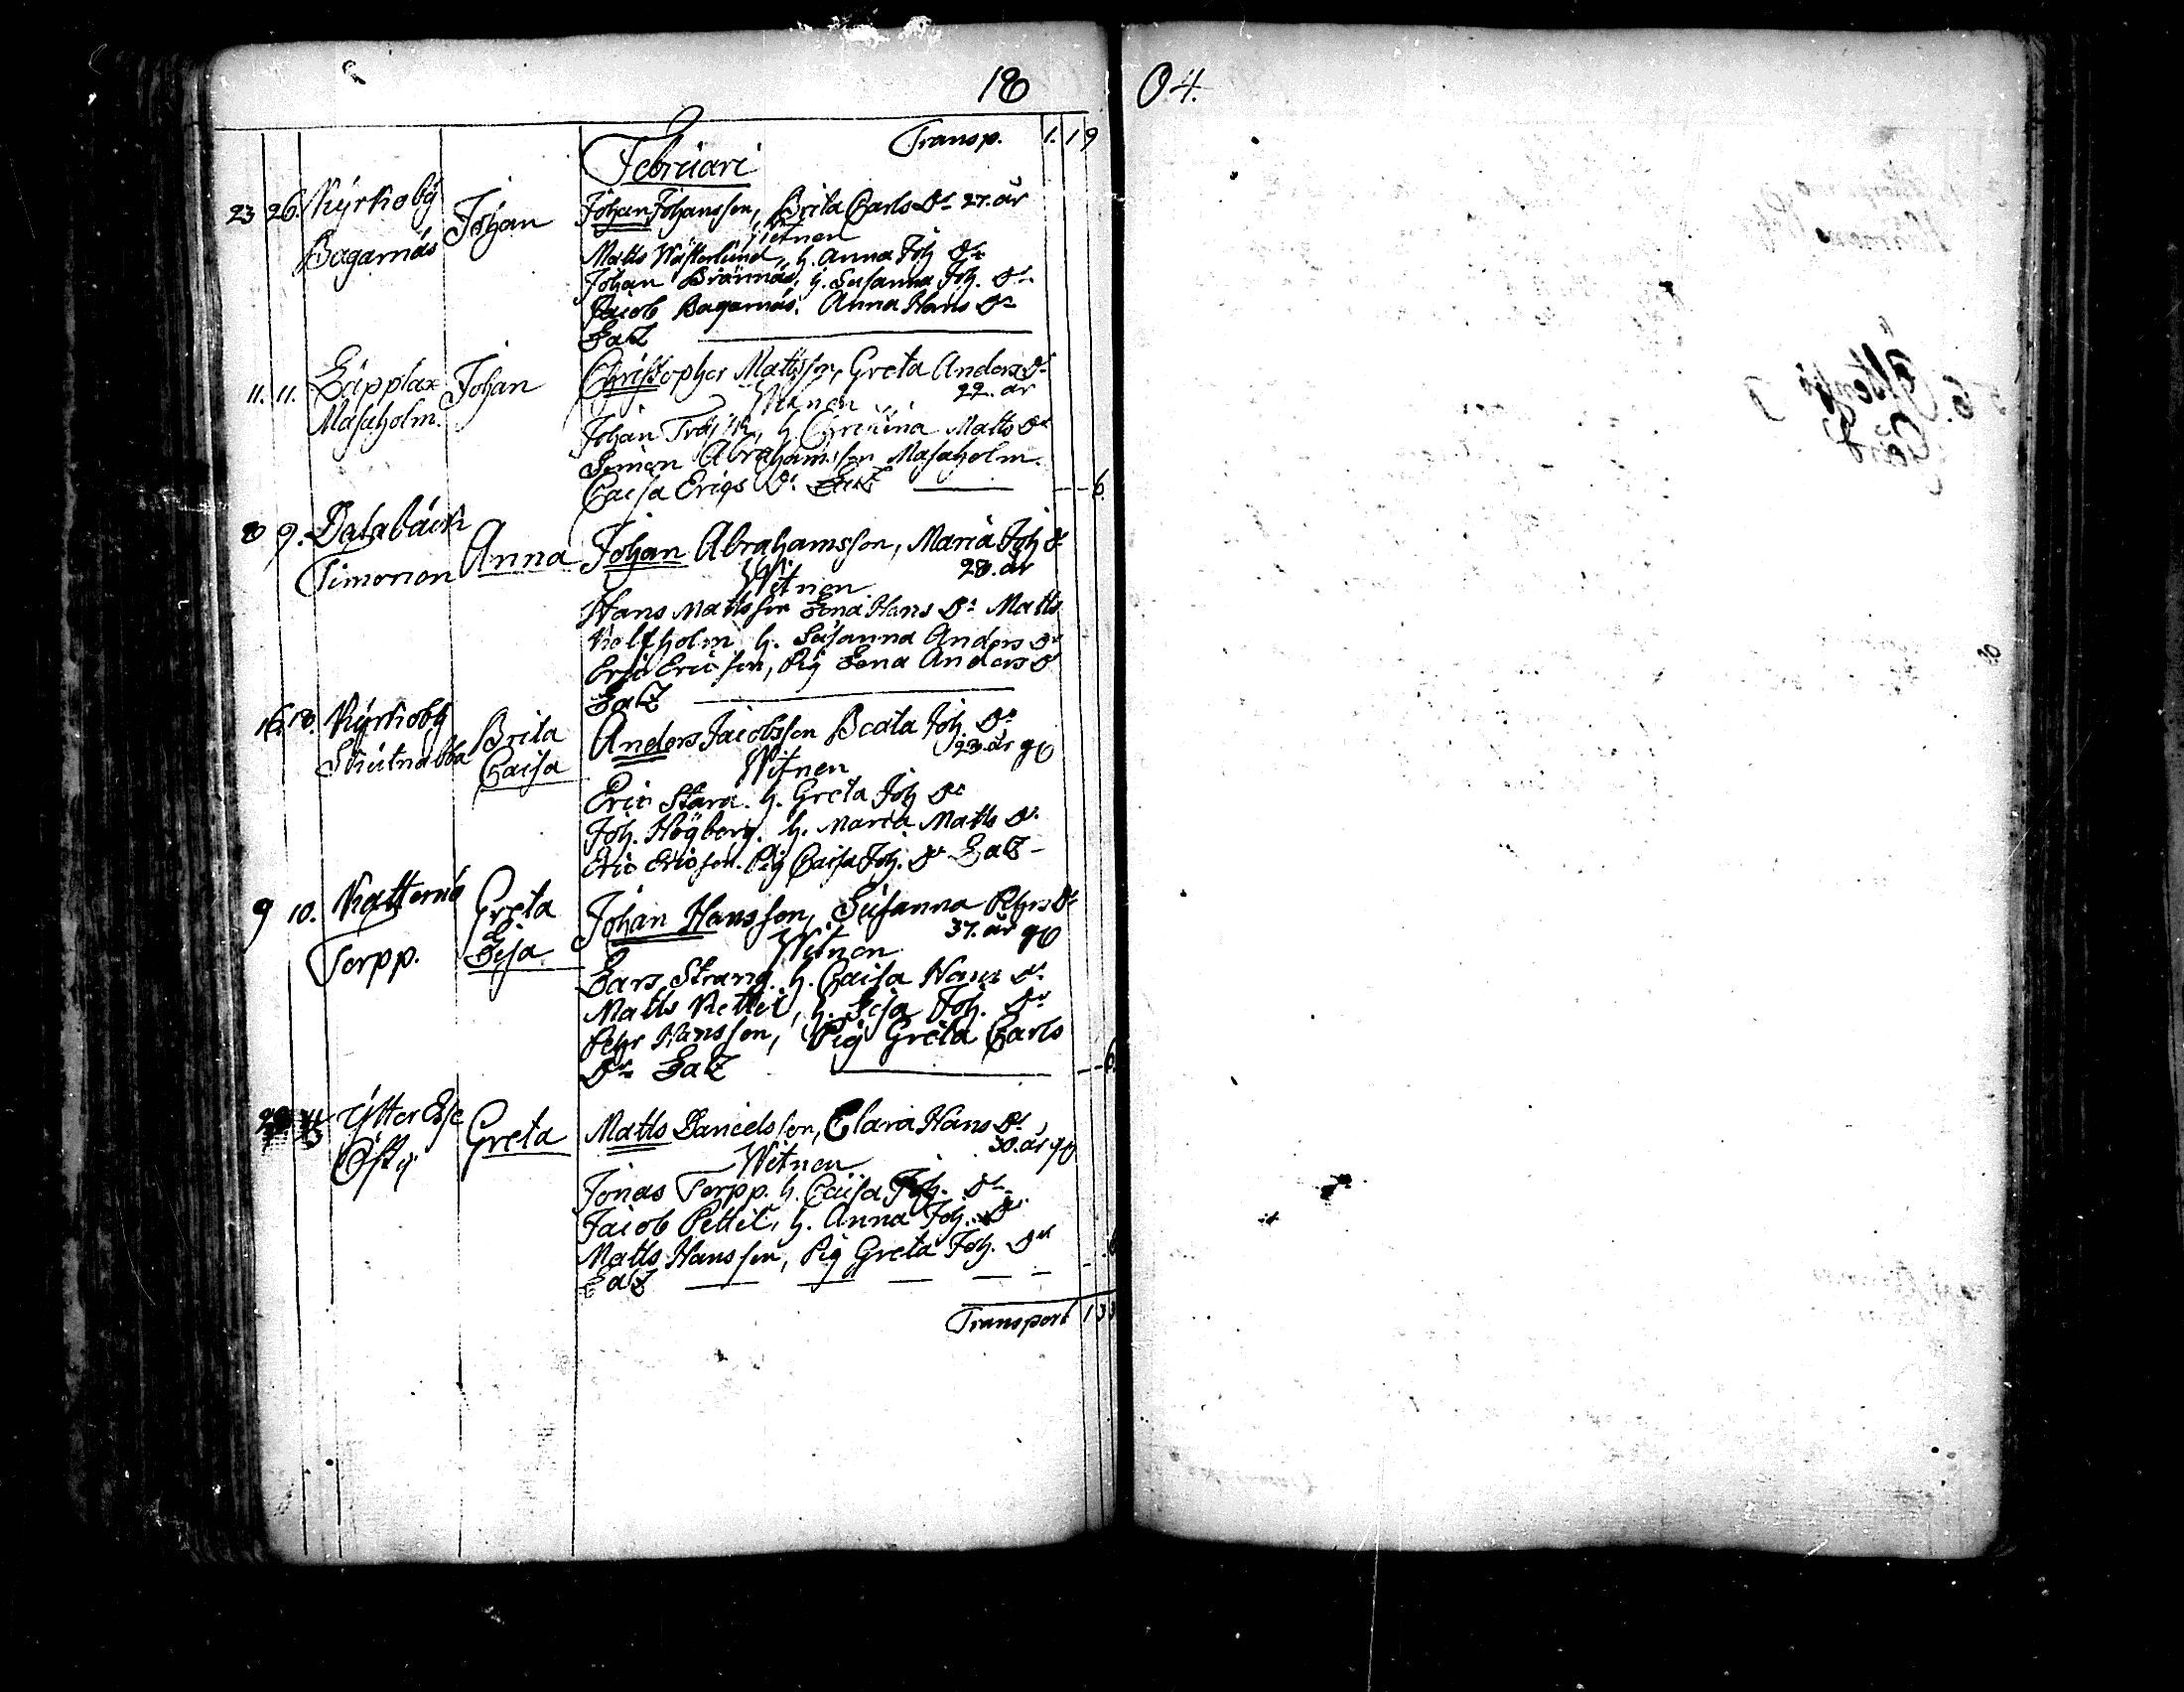 18 04.
Transp. 1. 19
Februari
23 26. Kyrkoby Johan Johan Johansson, Brita Carls Dr 27. år
Bagarnäs Witnen
Matts Wästerlund, h. Anna Joh Dr
Johan Brännäs, h. Susanna Joh. Dr
Jacob Bagarnäs. Anna Hans Dr
Salz
11. 11. Lepplax Johan Christopher Mattsson, Greta Anders Dr
Masaholm. Witnen 22. år
Johan Träsk, h. Christina Matts Dr
Simon Abrahamsson Masaholm.
Caisa Erics Dr. Salz 6
8 9. Dalabäck Anna Johan Abrahamsson, Maria Joh Dr
Timonen Witnen 28. år
Hans Mattsson Lena Hans Dr Matts
h. Susanna Anders Dr
Eric Ericsson, Pig Lena Anders Dr
Salz
16 18. Kyrkoby Brita Caisa Anders Jacobsson Beata Joh. Dr
23. år
Witnen
Eric Stara. h. Greta Joh Dr
Joh. Högberg. h. Maria Matts Dr.
Eric Ericsson. Pig Caisa Joh. Dr Salz
9 10. Katternö Greta Lisa Johan Hansson, Susanna Pehrs Dr
Torpp. Witnen 37. år
Lars Strang. h. Caisa Hans Dr.
Matts Kettil, h. Lisa Joh. Dr
Pehr Hansson, Pig Greta Carls
Dr Salz 6
Ytter Esse Greta Matts Danielsson, Clara Hans Dr
30. år
Witnen
Jonas Torpp. h. Caisa Joh. Dr
Jacob Pettil, h. Anna Joh. Dr
Matts Hansson, Pig Greta Joh. Dr
Salz
Transport